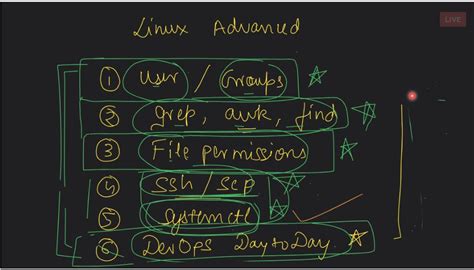 Linux Advanced
LIVE
① User / Groups
② grep, awk, find
③ File permissions
④ SSH/SCP
⑤ Systemctl
⑥ DevOPS Day to Day